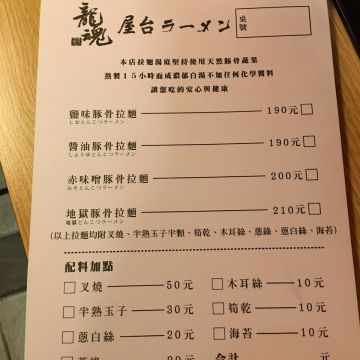 龍魂 屋台ラーメン 桌號
本店拉麵湯底堅持使用天然豚骨蔬果
熬製15小時而成濃郁白湯不加任何化學醬料
讓您吃的安心與健康
鹽味豚骨拉麵 190元
しおとんこつラーメン
醬油豚骨拉麵 190元
しようゆとんこつラーメン
赤味噌豚骨拉麵 200元
みそとんこつラーメン
地獄豚骨拉麵 210元
地獄とんこつラーメン
(以上拉麵均附叉燒、半熟玉子半顆、筍乾、木耳絲、蔥綠、蔥白絲、海苔)
配料加點
叉燒 50元 木耳絲 10元
半熟玉子 30元 筍乾 10元
蔥白絲 20元 海苔 10元
20元 合計 元